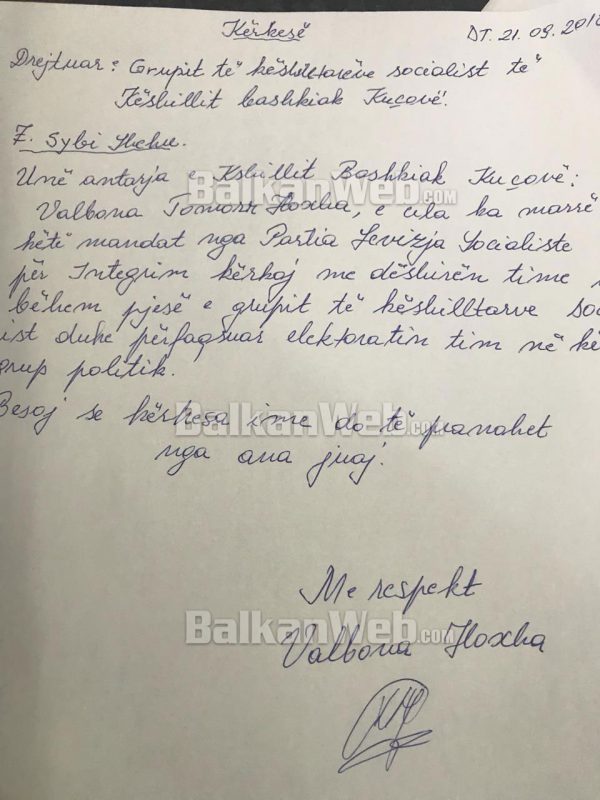 Kërkesë
DT. 21.09.201
Drejtuar: Grupit të këshilltarëve socialist të
Këshillit bashkiak Kuçovë.
Z. Sybi
Unë antarja e Kshillit Bashkiak Kuçovë:
BalkanWeb.com
Valbona Tomorr Hoxha, e cila ka marrë
këtë mandat nga Partia Levizja Socialiste
për Integrim kërkoj me dëshirën time
bëhem pjesë e grupit të këshilltarve soc
ist duke përfaqsuar elektoratin tim në kë
grup politik.
Besoj se kërkesa ime do të pranohet
BalkanWeb.com
nga ana juaj.
Me respekt
BalkanWeb.com
Valbona Hoxha